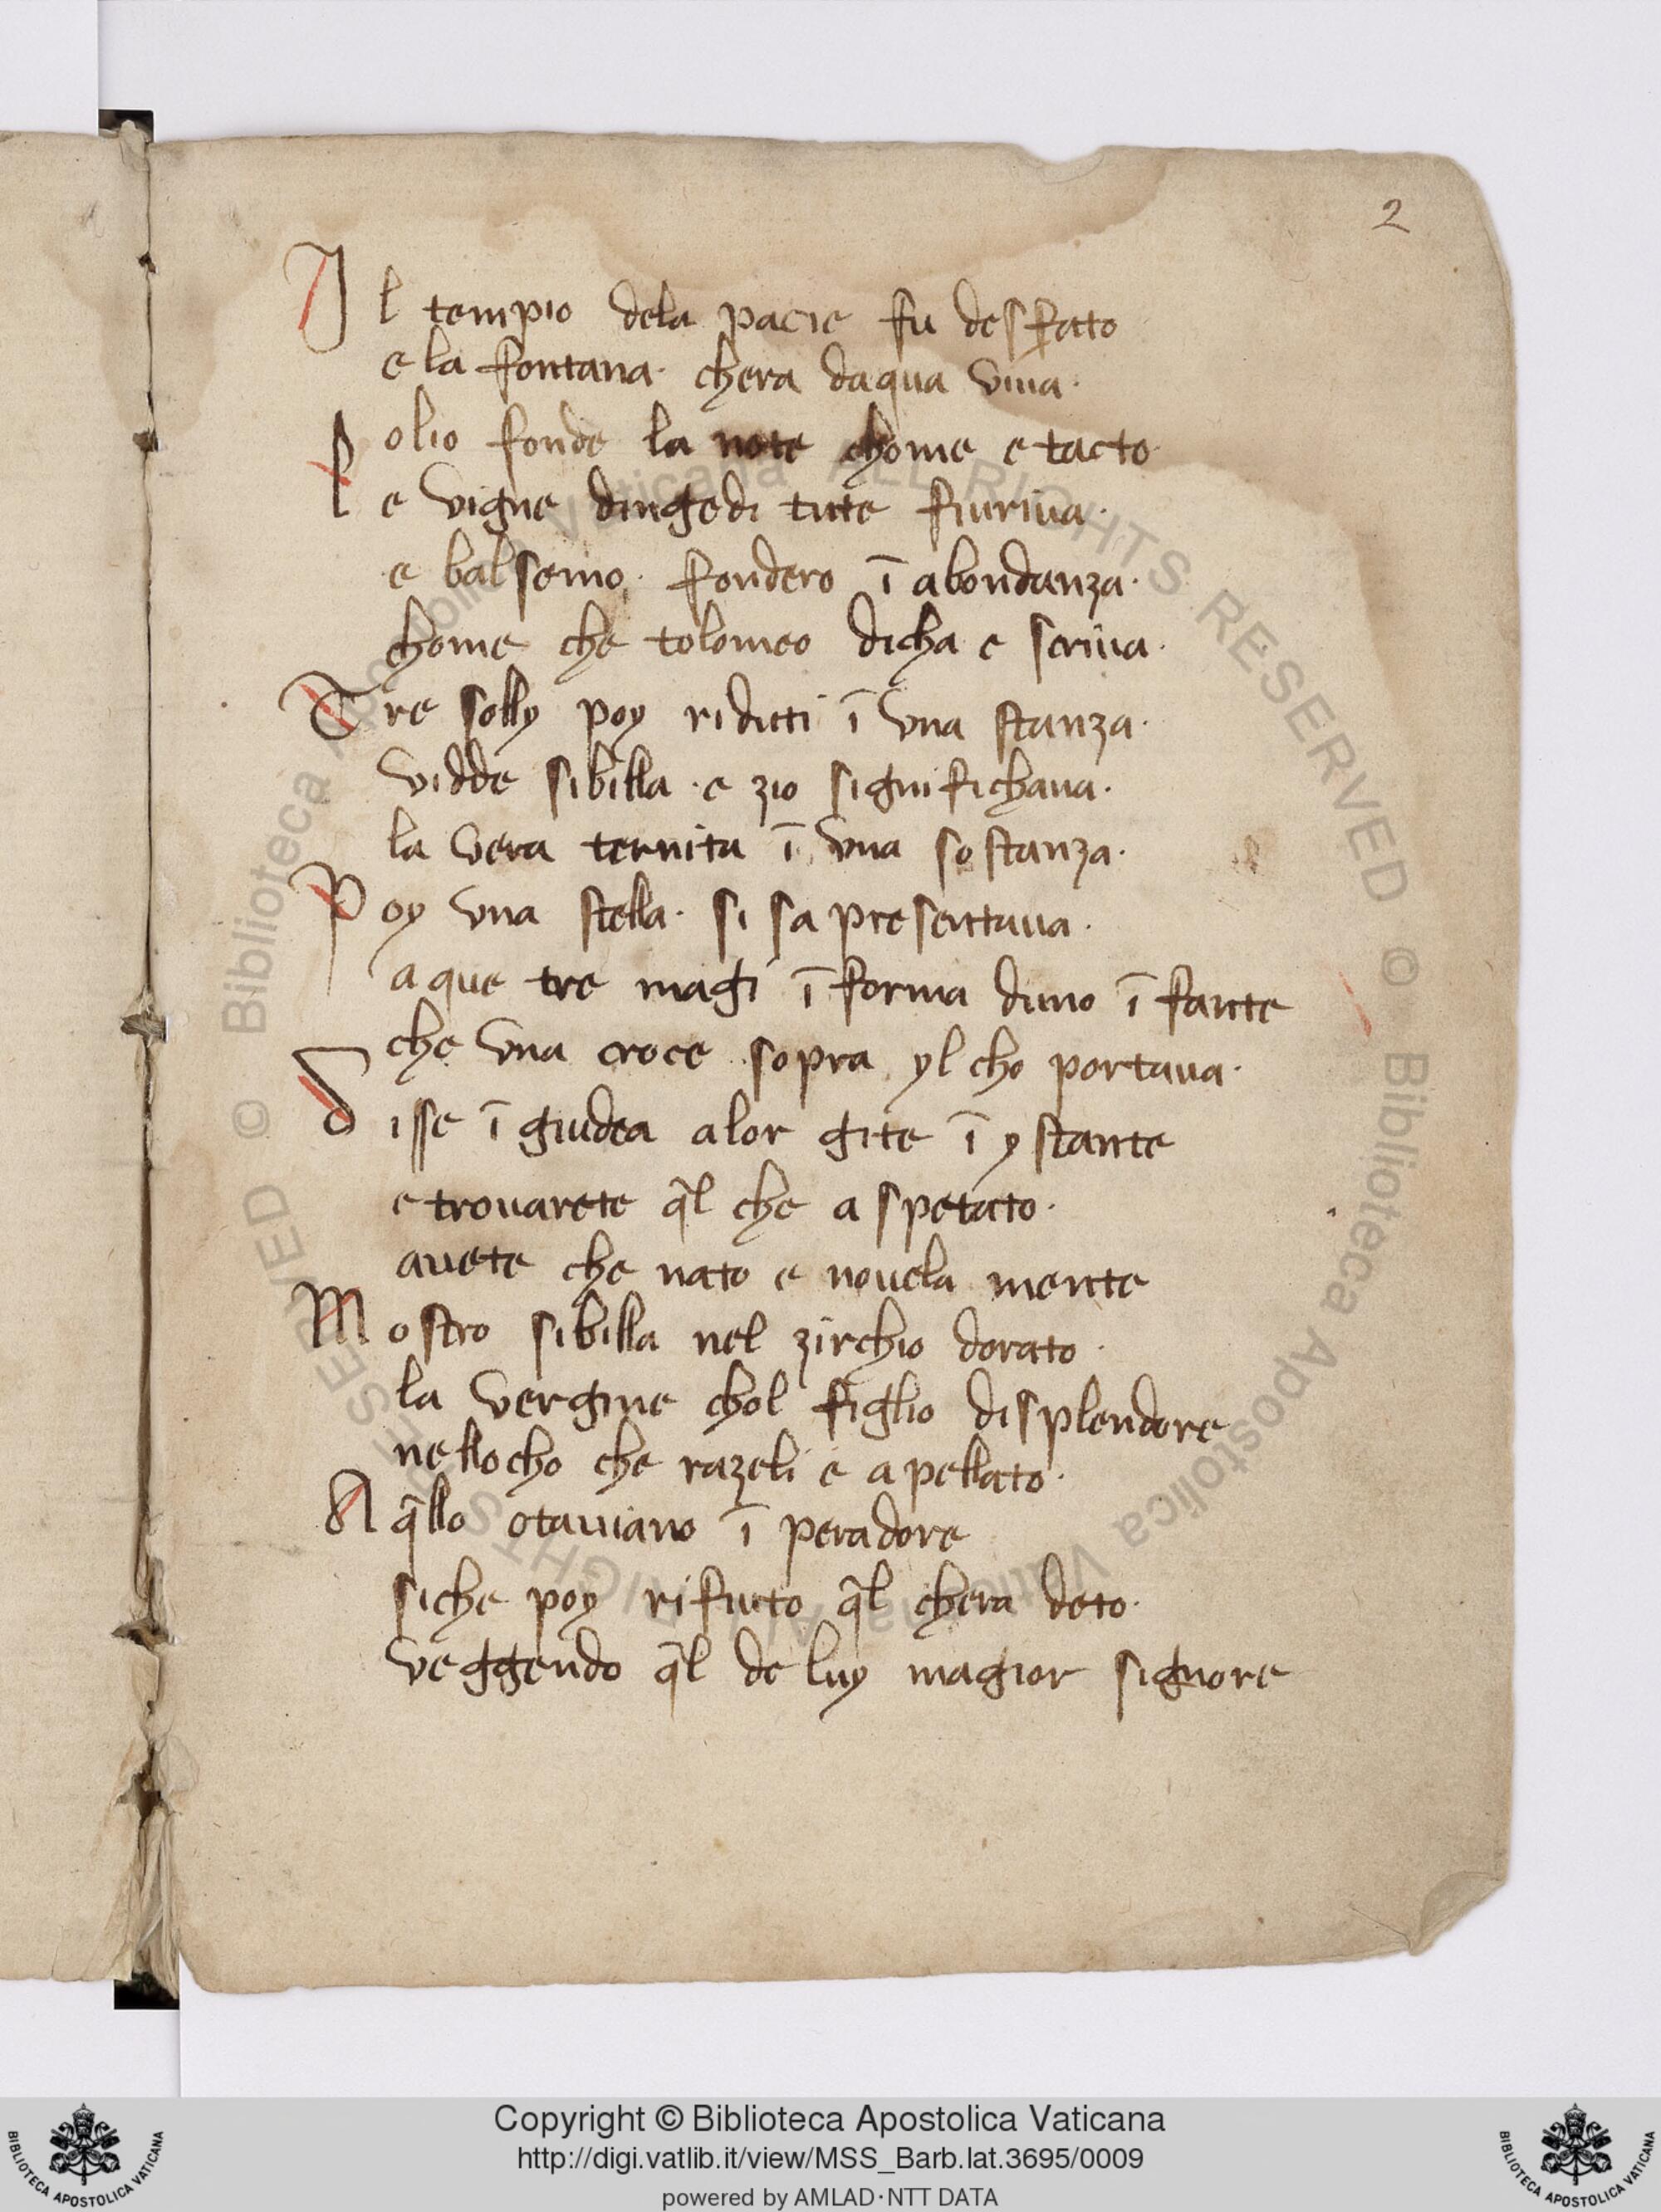 2
Il tempio dela pacie fu desfato
e la fontana· chera daqua viua·
olio fonde la note chome e tacto·
l e vigne dingedi tute fiuriua·
e balsemo· fondero ī abondanza·
chome che tolomeo dicha e scriua·
Tre solly poy riduti ī vna stanza·
vidde sibilla· e zio significhaua·
la vera ternita ī vna sostanza·
Poy vna stella· si sa presentaua·
a que tre magi ī forma duno ī fante
che vna croce sopra yl cho portaua·
Disse ī giudea alor gite ī ystante
e trouarete q̄l che a spetato·
auete che nato e nouela mente
Mostro sibilla nel zirchio dorato·
la vergine chol figlio displendore
nellocho che razeli e apellato·
A q̄llo otauiano ī peradore
siche poy rifiuto q̄l chera deto·
veggendo q̄l de luy magior signore
© Biblioteca Apostolica Vaticana ALL RIGHTS RESERVED © Biblioteca Apostolica Vaticana ALL RIGHTS RESERVED
Copyright © Biblioteca Apostolica Vaticana
http://digi.vatlib.it/view/MSS_Barb.lat.3695/0009
powered by AMLAD·NTT DATA
BIBLIOTECA APOSTOLICA VATICANA
BIBLIOTECA APOSTOLICA VATICANA